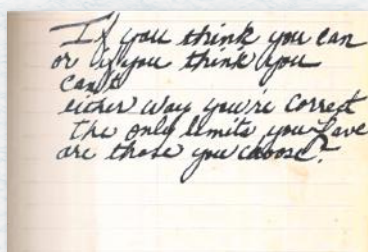 If you think you can
or if you think you
can't
either way you're correct
the only limits you have
are those you choose.